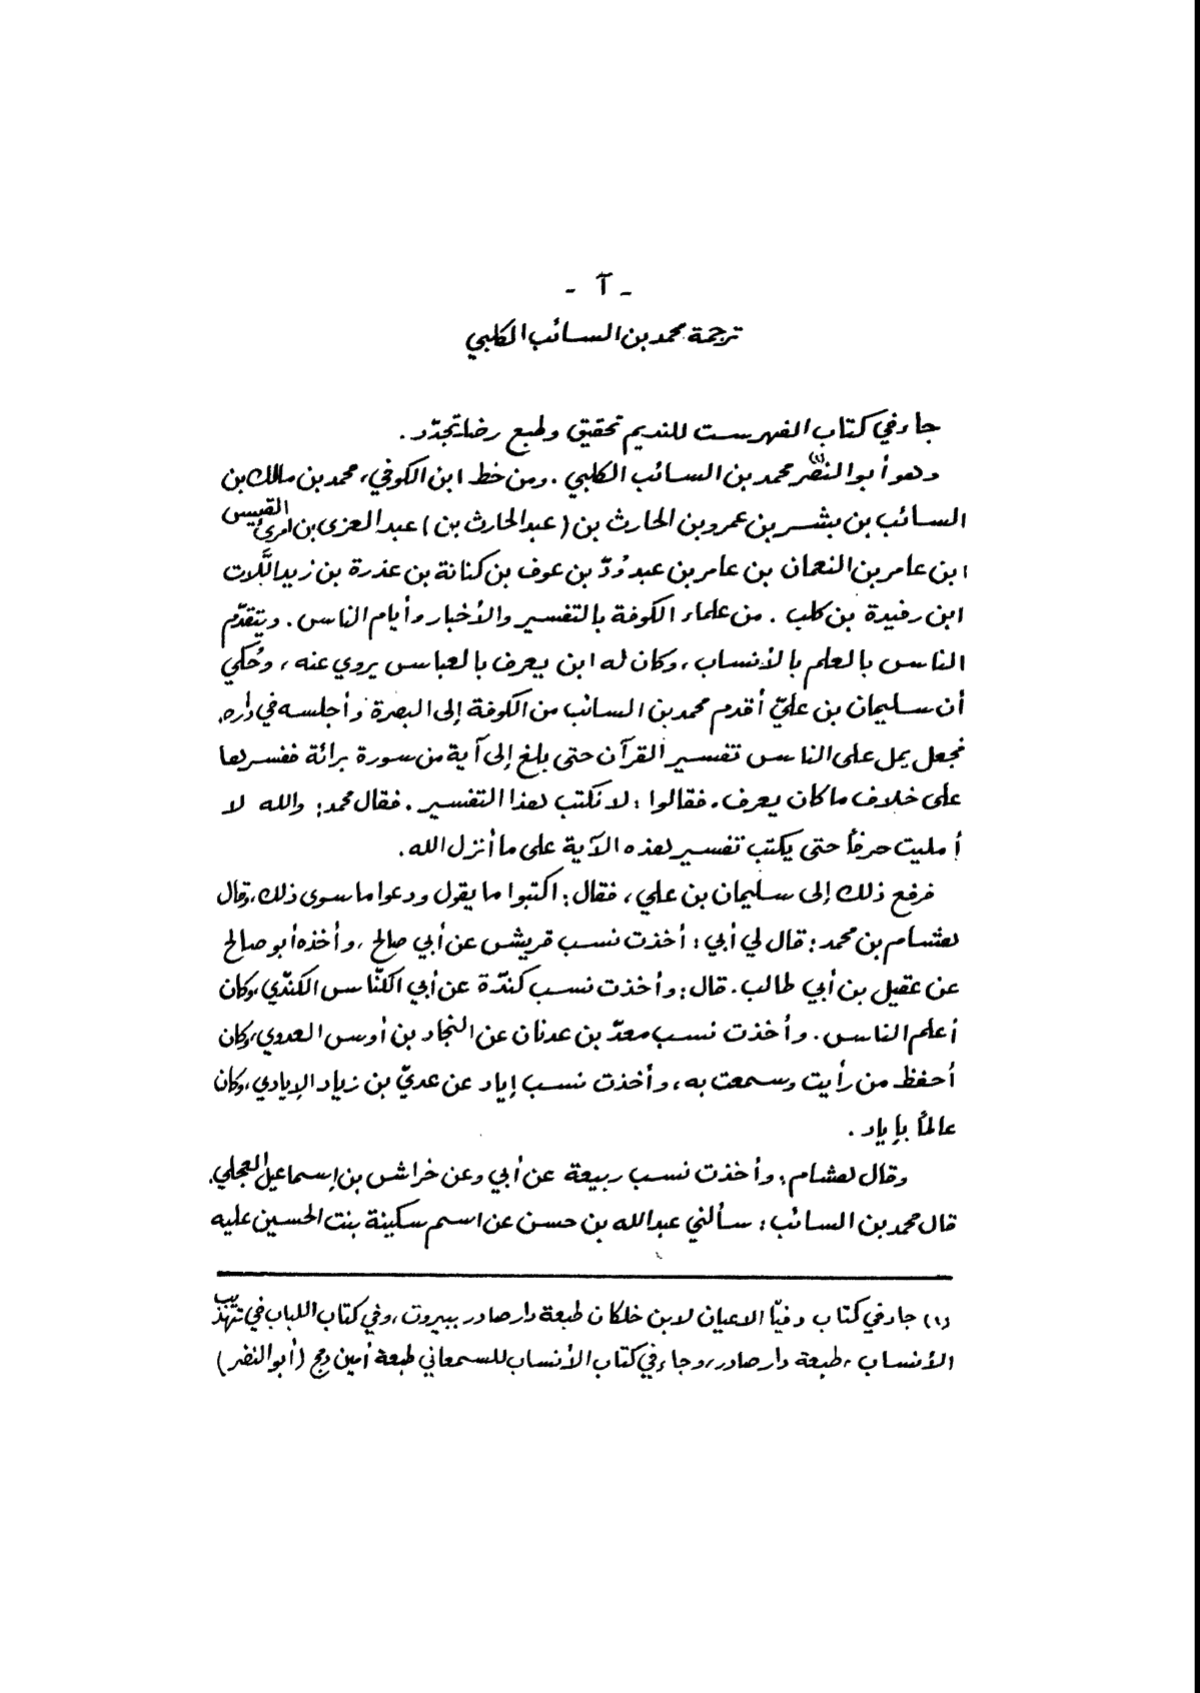 - آ -
ترجمة محمد بن السائب الكلبي
جاء في كتاب الفهرست للنديم تحقيق وطبع رضا تجدّد .
وهو أبو النضر(١) محمد بن السائب الكلبي . ومن خط ابن الكوفي، محمد بن مالك بن
السائب بن بشر بن عمرو بن الحارث بن (عبد الحارث بن) عبد العزى بن امرئ القيس
ابن عامر بن النعمان بن عامر بن عبد وُدّ بن عوف بن كنانة بن عذرة بن زيد الّلات
ابن رفيدة بن كلب . من علماء الكوفة بالتفسير والأخبار وأيام الناس . ويتقدّم
الناس بالعلم بالأنساب ، وكان له ابن يعرف بالعباس يروي عنه ، وحُكي
أن سليمان بن عليّ أقدم محمد بن السائب من الكوفة إلى البصرة وأجلسه في داره.
فجعل يمل على الناس تفسير القرآن حتى بلغ إلى آية من سورة برائة ففسرها
على خلاف ما كان يعرف . فقالوا : لا نكتب هذا التفسير . فقال محمد : والله لا
أمليت حرفاً حتى يكتب تفسير هذه الآية على ما أنزل الله .
فرفع ذلك إلى سليمان بن علي ، فقال : اكتبوا ما يقول ودعوا ما سوى ذلك ، وقال
هشام بن محمد : قال لي أبي : أخذت نسب قريش عن أبي صالح ، وأخذه أبو صالح
عن عقيل بن أبي طالب . قال : وأخذت نسب كندّة عن أبي الكنّاس الكندّي ، وكان
أعلم الناس . وأخذت نسب معدّ بن عدنان عن النجاد بن أوس العدوي ، وكان
أحفظ من رأيت وسمعت به ، وأخذت نسب إياد عن عديّ بن زياد الإيادي ، وكان
عالماً بإياد .
وقال هشام : وأخذت نسب ربيعة عن أبي وعن خراش بن إسماعيل العجلي.
قال محمد بن السائب : سألني عبد الله بن حسن عن اسم سكينة بنت الحسين عليه
(١) جاء في كتاب وفيّا الاعيان لابن خلكان طبعة دار صادر ببيروت ، وفي كتاب اللباب في تهذيب
الأنساب ، طبعة دار صادر ، وجاء في كتاب الأنساب للسمعاني طبعة أمين دمج (أبو النضر)